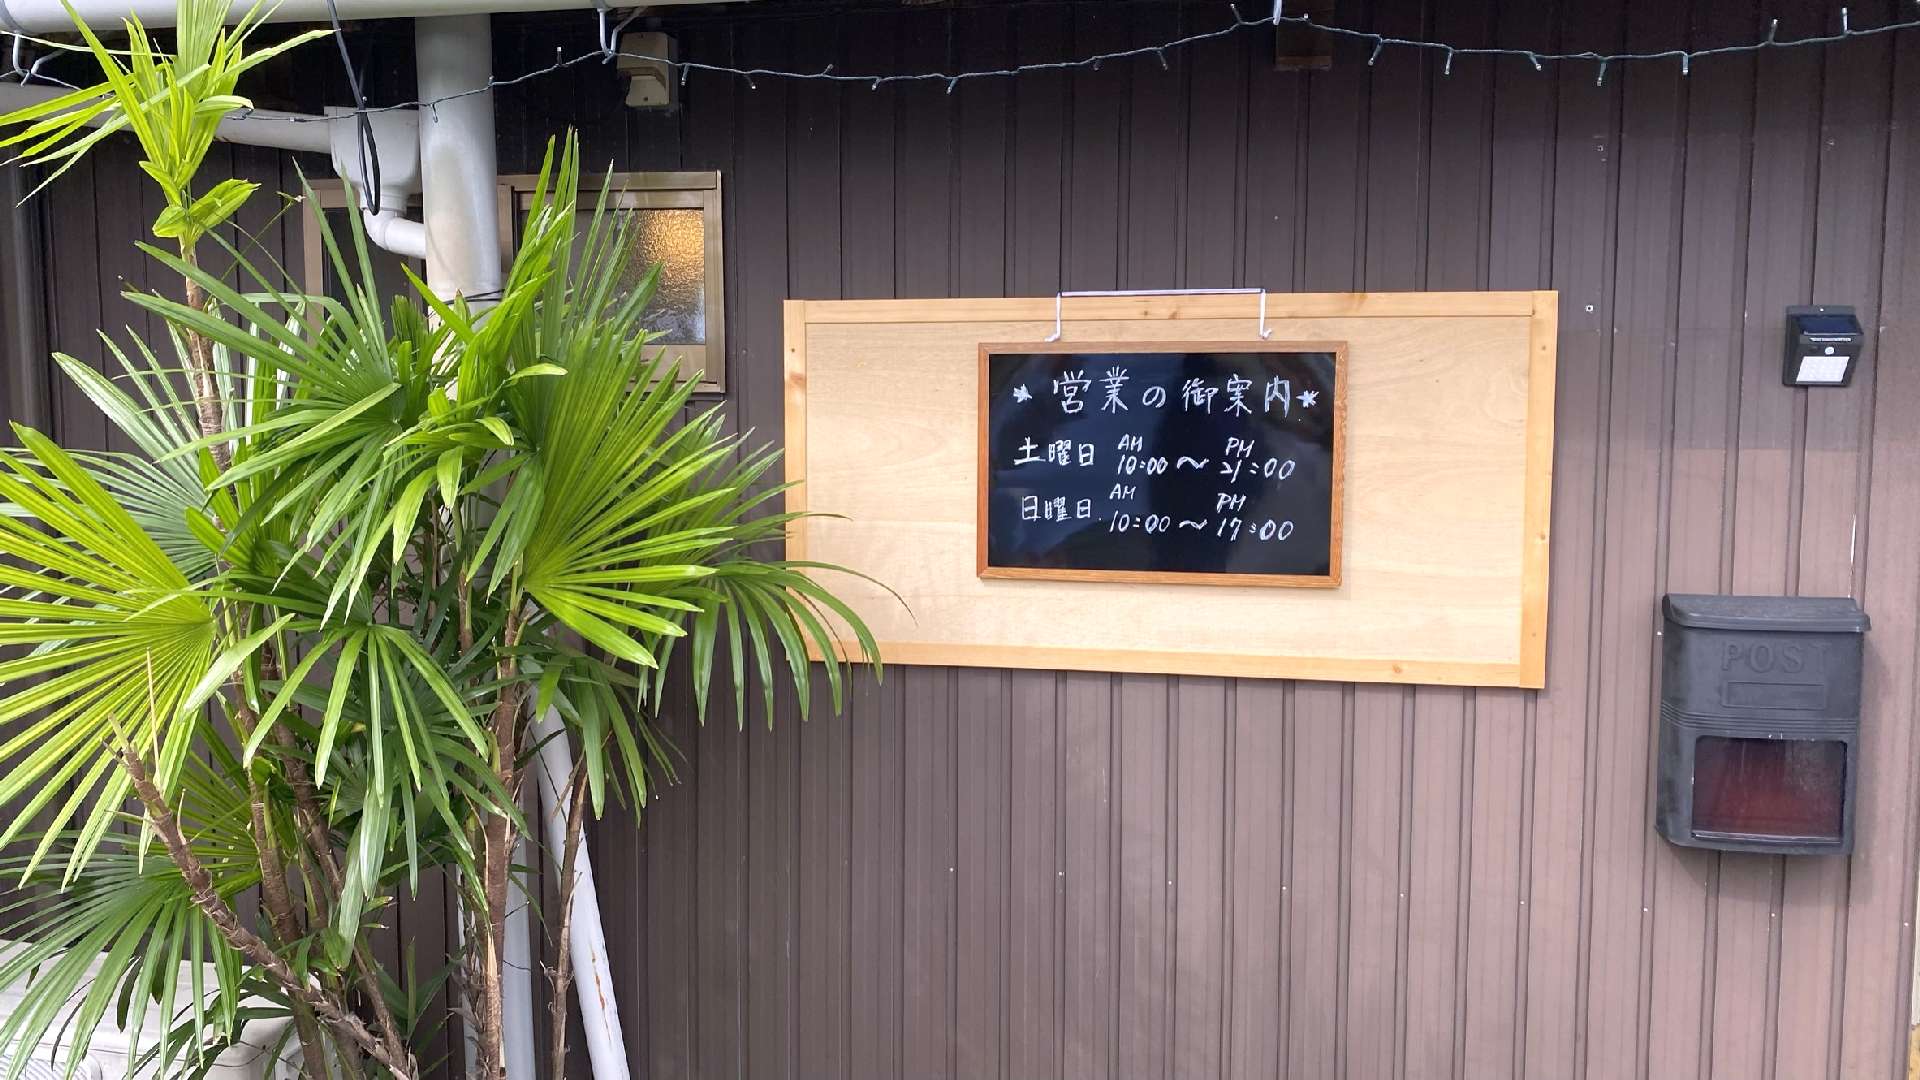 *営業の御案内*
土曜日 AM 10:00 〜 PM 21:00
日曜日 AM 10:00 〜 PM 17:00
POST